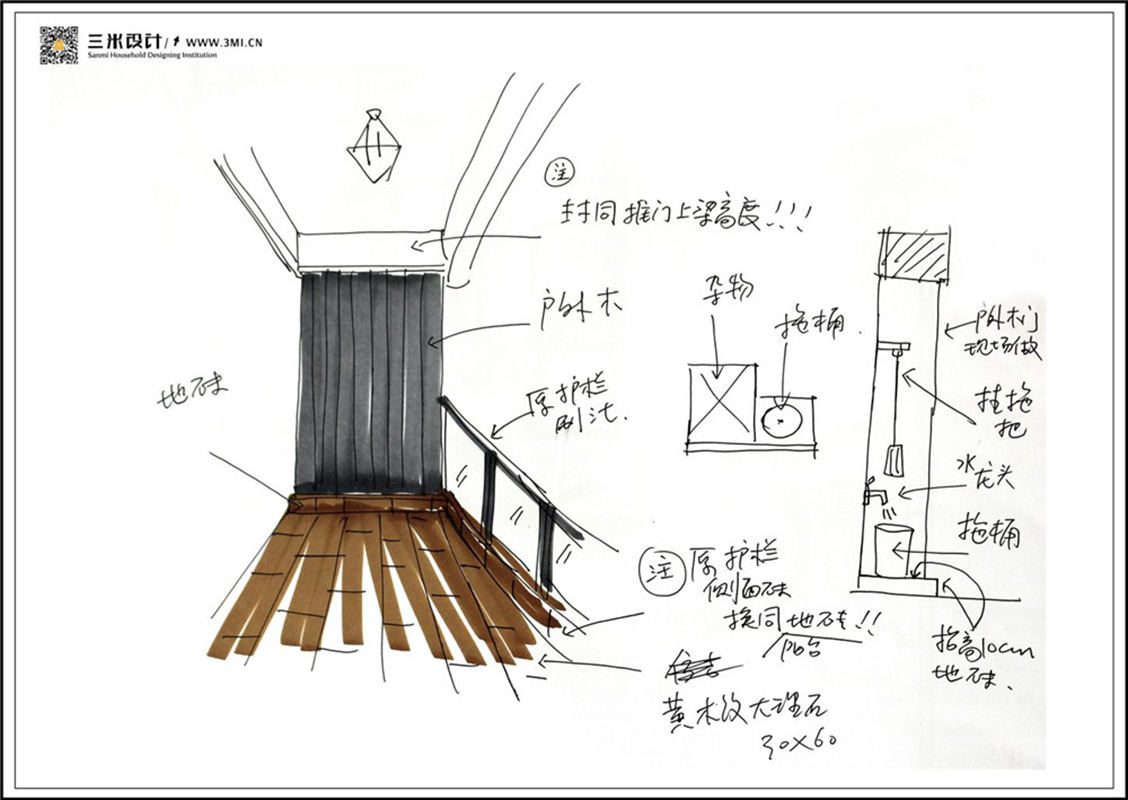 三米设计/ WWW.3MI.CN
Sanmi Household Designing Institution
注
封同推门上梁高度!!!
户外木
原护栏
刷
地砖
杂物
拖桶.
户外木门
现场做
挂拖
把
水
龙头
拖桶
抬高10cm
地砖.
注 原护栏
侧面砖
换同地砖!!
阳台
黄木纹大理石
30X60